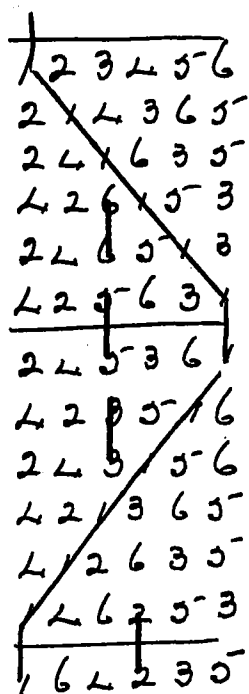 1 2 3 4 5 6
2 1 4 3 6 5
2 4 1 6 3 5
4 2 6 1 5 3
2 4 6 5 1 3
4 2 5 6 3 1
2 4 5 3 6 1
4 2 3 5 1 6
2 4 3 1 5 6
4 2 1 3 6 5
4 1 2 6 3 5
1 4 6 2 5 3
1 6 4 2 3 5